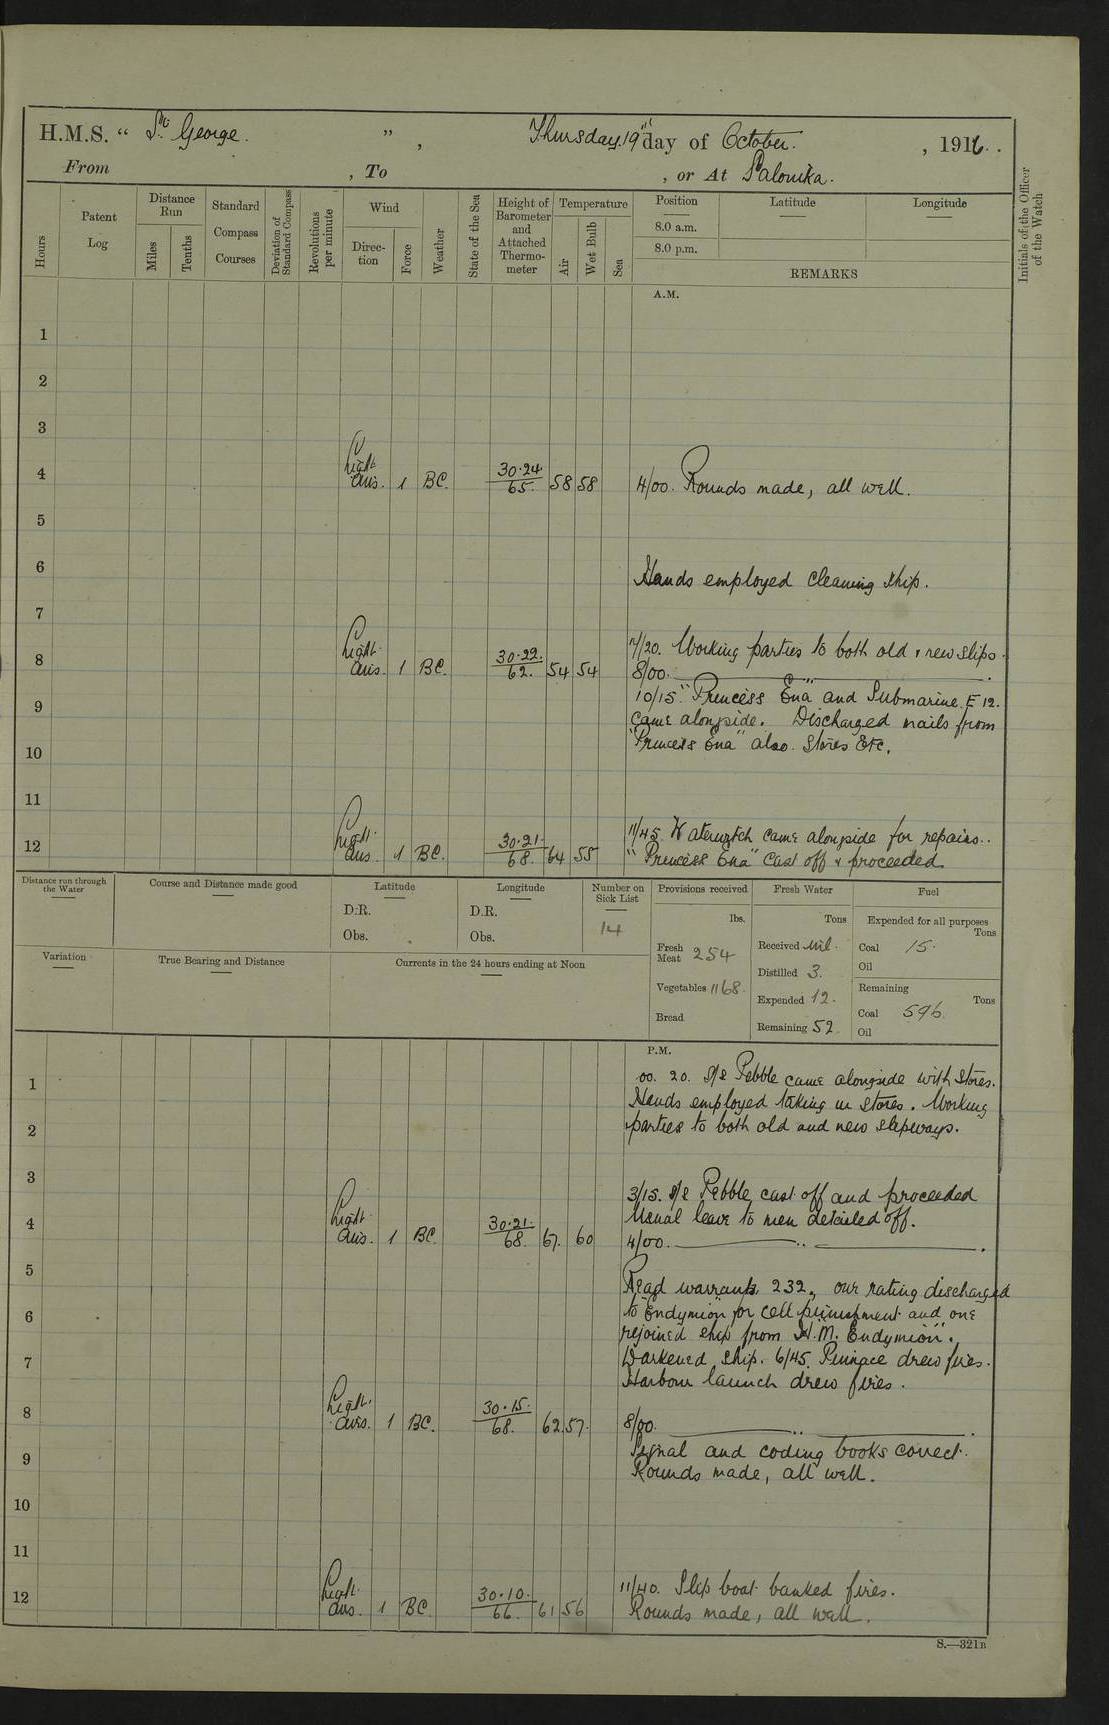 H.M.S. “ St George. ” , Thursday 19th day of October. , 1916.
From , To , or At Salonika.
Hours
Patent Log
Distance Run
Miles
Tenths
Standard Compass Courses
Deviation of Standard Compass
Revolutions per minute
Wind
Direction
Force
Weather
State of the Sea
Height of Barometer and Attached Thermometer
Temperature
Air
Wet Bulb
Sea
Position Latitude Longitude
8.0 a.m.
8.0 p.m.
REMARKS
Initials of the Officer of the Watch
A.M.
1
2
3
4 Light airs. 1 BC. 30·24 65. 58 58 4/00. Rounds made, all well.
5
6 Hands employed cleaning ship.
7
7/20. Working parties to both old & new slips.
8 Light airs. 1 BC. 30·22. 62. 54 54 8/00. ———— „ ————.
10/15 "Princess Ena" and Submarine E 12.
9 came alongside. Discharged mails from
"Princess Ena" also stores Etc.
10
11
11/45 Waterwitch came alongside for repairs..
12 Light airs. 1 BC. 30·21· 68. 64 55 "Princess Ena" cast off & proceeded
Distance run through the Water
Course and Distance made good
Latitude
D.R.
Obs.
Longitude
D.R.
Obs.
Number on Sick List
14
Provisions received
lbs.
Fresh Meat 254
Vegetables 1168.
Bread
Fresh Water
Tons
Received Nil.
Distilled 3.
Expended 12.
Remaining 52
Fuel
Expended for all purposes
Tons
Coal 15.
Oil
Remaining
Tons
Coal 596.
Oil
Variation
True Bearing and Distance
Currents in the 24 hours ending at Noon
P.M.
00. 20. S/S Pebble came alongside with Stores.
1 Hands employed taking in stores. Working
2 parties to both old and new slipways.
3
3/15. S/S Pebble cast off and proceeded
Usual leave to men detailed off.
4 Light airs. 1 BC. 30·21· 68. 67. 60 4/00. ———— „ ————.
5
Read warrant 232, our rating discharged
6 to "Endymion" for cell punishment and one
rejoined ship from H.M. Endymion".
7 Darkened ship. 6/45. Pinnace drew fires.
Harbour launch drew fires.
8 Light. airs. 1 BC. 30·15· 68. 62. 57. 8/00. ———— „ ————.
Signal and coding books correct.
9 Rounds made, all well.
10
11
11/40. Slip boat banked fires.
12 Light airs. 1 BC. 30·10· 66. 61 56 Rounds made, all well.
S.—321B